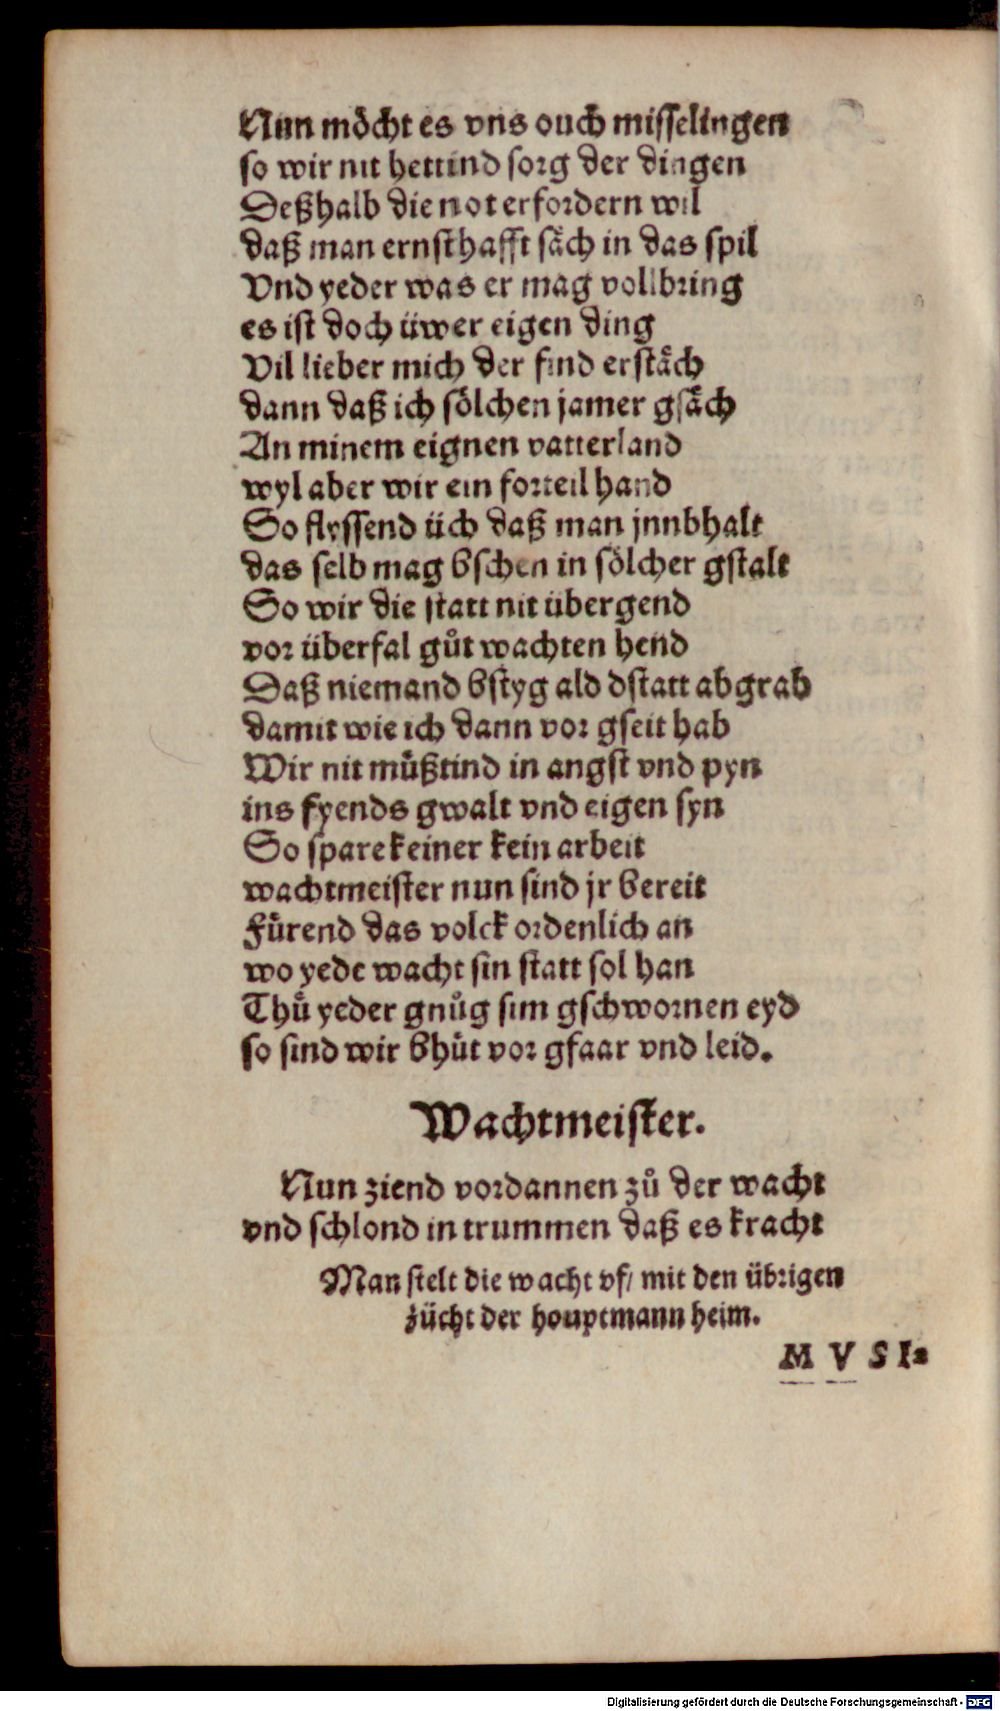 Nun möcht es vns ouch misselingen
so wir nit hettind sorg der dingen
Deßhalb die not erfordern wil
daß man ernsthafft säch in das spil
Vnd yeder was er mag vollbring
es ist doch üwer eigen ding
Vil lieber mich der find erstäch
dann daß ich sölchen jamer gsäch
An minem eignen vatterland
wyl aber wir ein forteil hand
So flyssend üch daß man jnnbhalt
das selb mag bschen in sölcher gstalt
So wir die statt nit übergend
vor überfal gůt wachten hend
Daß niemand bstyg ald dstatt abgrab
damit wie ich dann vor gseit hab
Wir nit müßtind in angst vnd pyn
ins fyends gwalt vnd eigen syn
So spare keiner kein arbeit
wachtmeister nun sind jr bereit
Fürend das volck ordenlich an
wo yede wacht sin statt sol han
Thů yeder gnůg sim gschwornen eyd
so sind wir bhüt vor gfaar vnd leid.
Wachtmeister.
Nun ziend vordannen zů der wacht
vnd schlond in trummen daß es kracht
Man stelt die wacht vf/ mit den übrigen
zücht der houptmann heim.
MVSI⸗
Digitalisierung gefördert durch die Deutsche Forschungsgemeinschaft - DFG